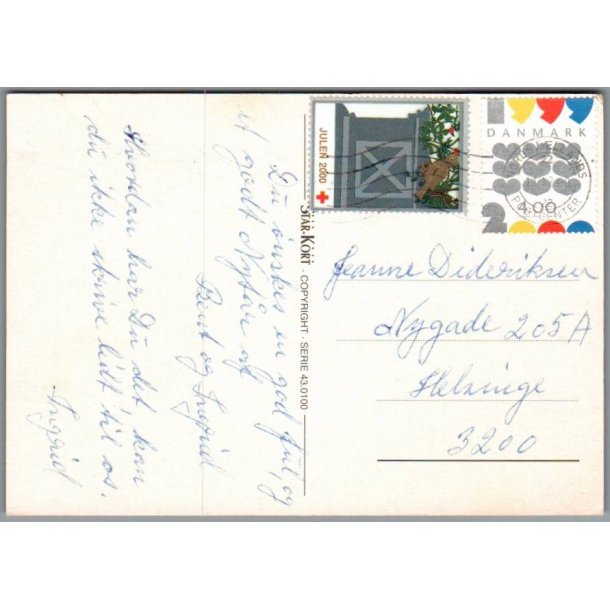 Du ønskes en god Jul, og
et godt Nytår af
Bent og Ingrid
Hvordan har Du det, kan
du ikke skrive lidt til os.
Ingrid
STAR-KORT · COPYRIGHT · SERIE 43.0100
JULEN 2000
DANMARK
4.00
2
POSTCENTER
Jeanne Dideriksen
Nygade 205A
Helsinge
3200